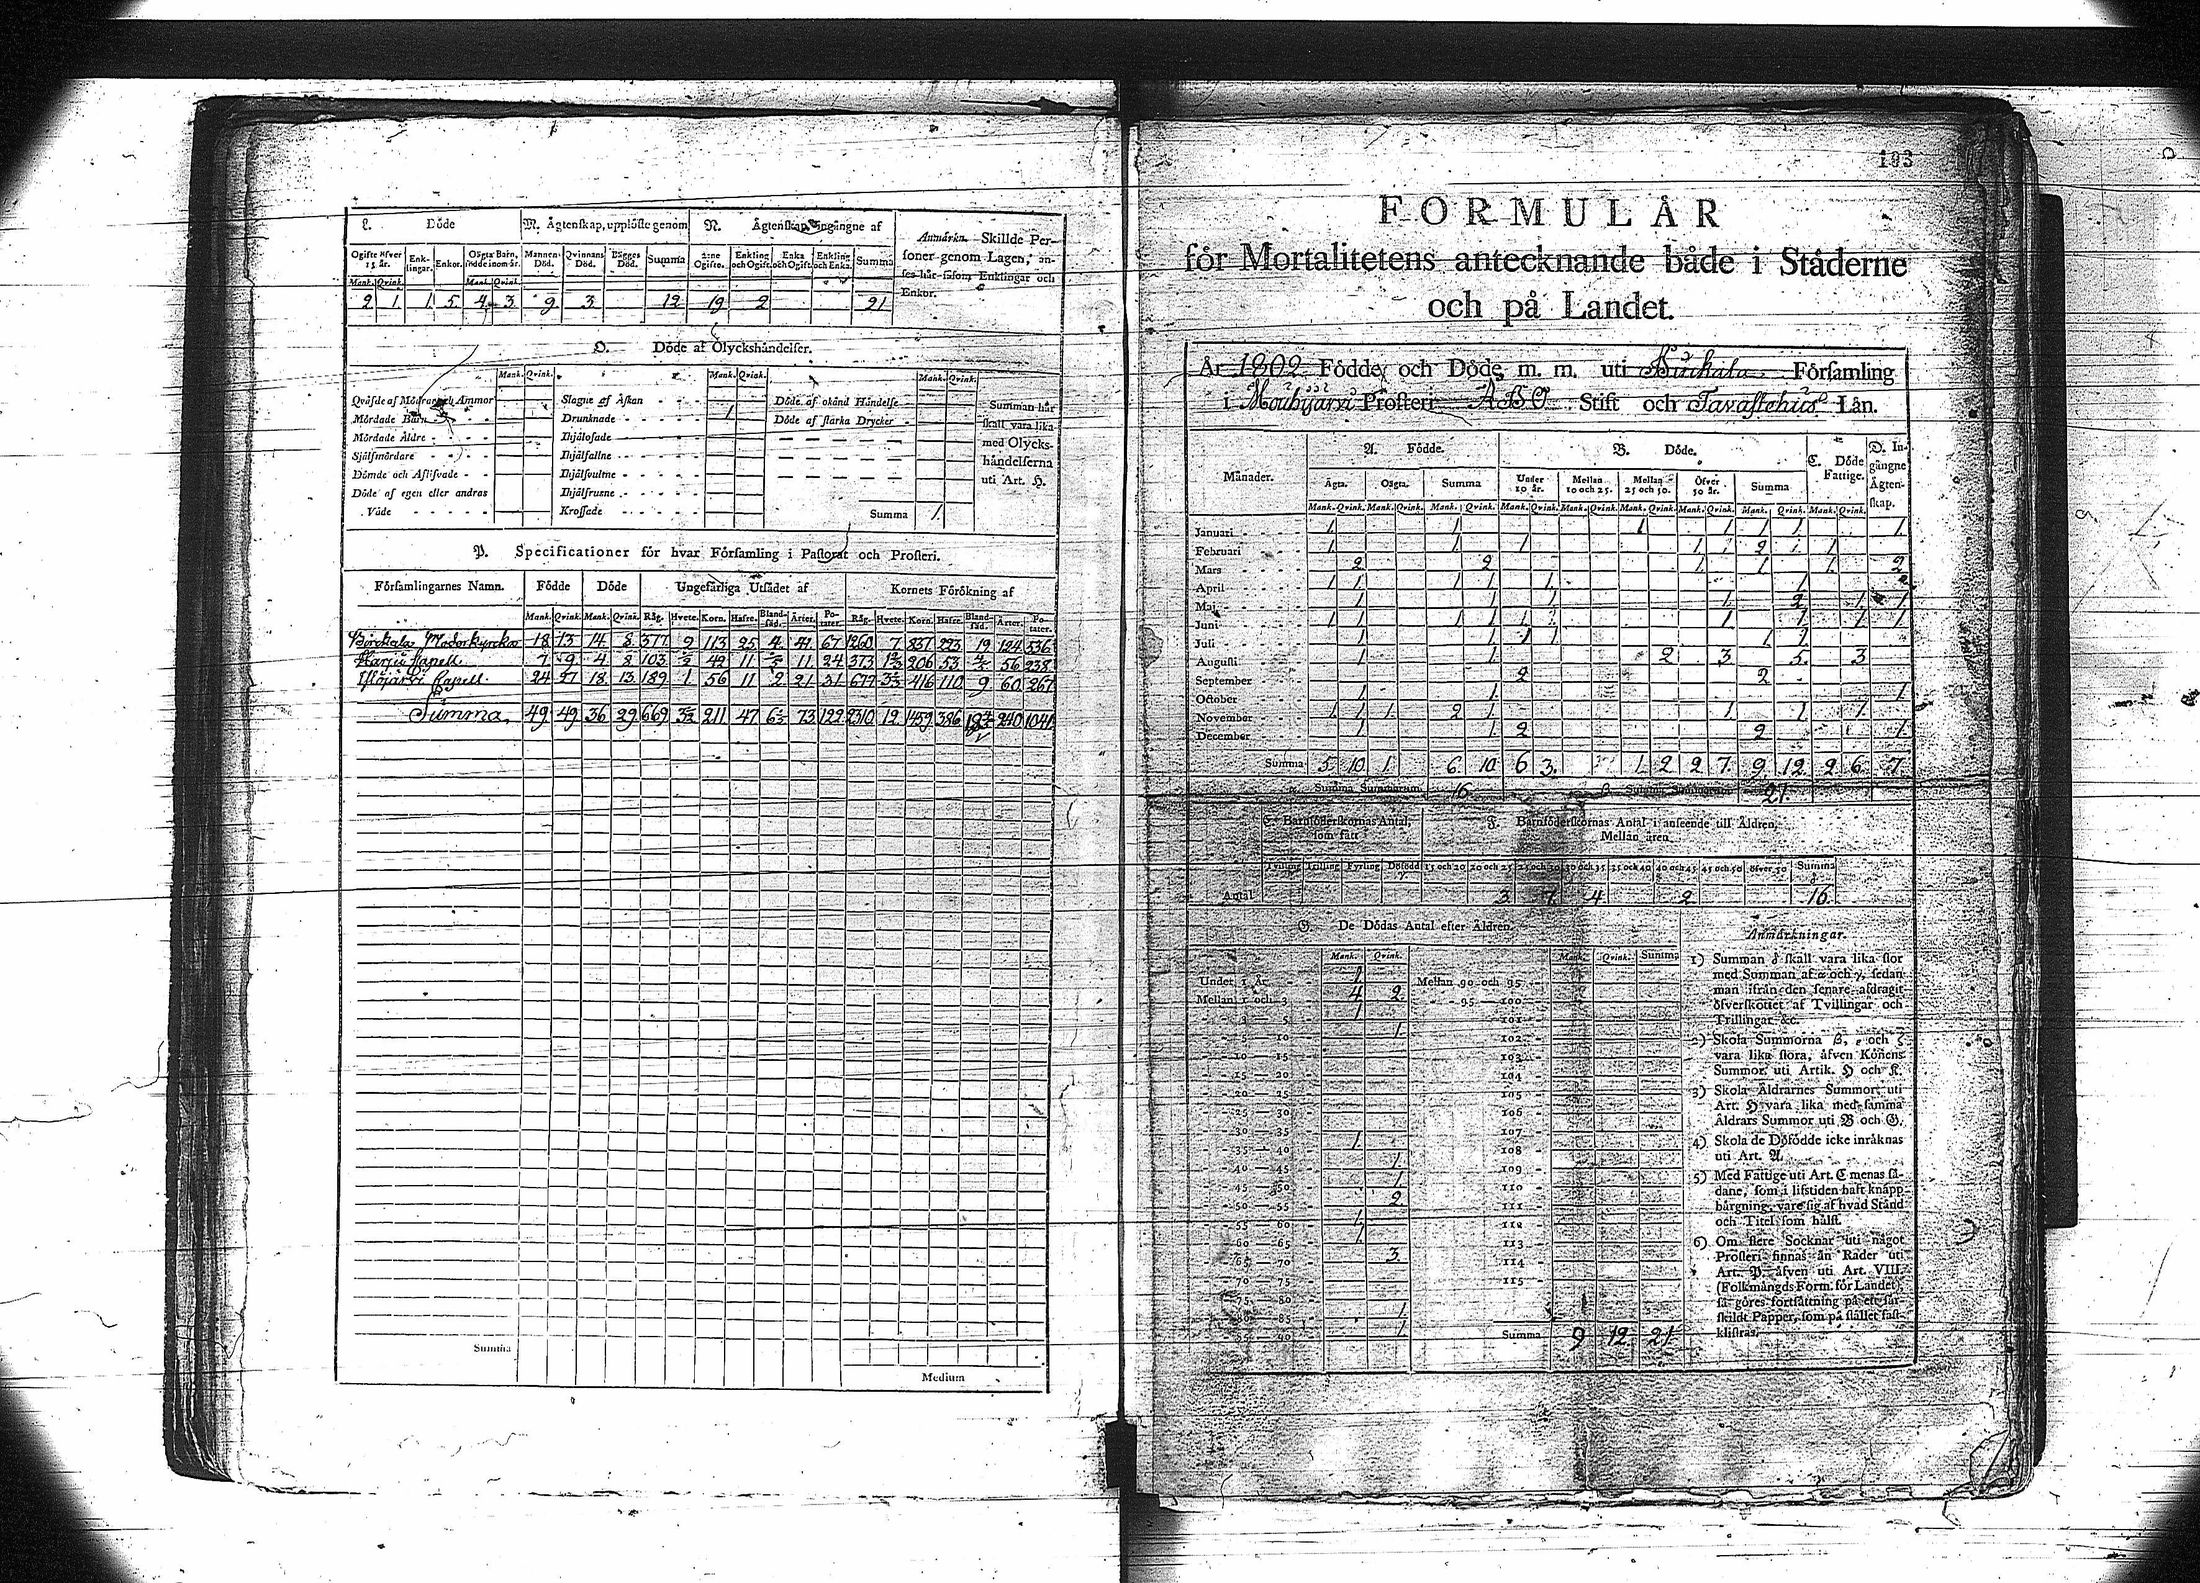 L. Döde
M. Ågtenskap, upplöste genom
N. Ågtenskap, ingångne af
Ogifte öfver 15 år. Enklingar. Enkor. Oågta Barn, födde inom år. Mannens Död. Qvinnans Död. Bågges Död. Summa 2:ne Ogifte. Enkling och Ogift. Enka och Ogift. Enkling och Enka. Summa
Mank. Qvink. Mank. Qvink.
2 1 1 5 4 3 9 3 12 19 2 21
Anmårkn. Skillde Per-
soner genom Lagen, an-
ses hår såsom Enklingar och
Enkor.
O. Döde af Olyckshåndelser.
Mank. Qvink. Mank. Qvink. Mank. Qvink.
Qvåfde af Mödrar och Ammor
Mördade Barn
Mördade Åldre
Sjålfmördare
Dömde och Aflifvade
Döde af egen eller andras
Våde
Slagne af Åskan
Drunknade 1
Ihjålosade
Ihjålfallne
Ihjålsvultne
Ihjålfrusne
Krossade
Döde af okånd Håndelse
Döde af starka Drycker
Summa 1.
Summan hår
skall vara lika
med Olycks-
håndelserna
uti Art. H.
P. Specificationer för hvar Församling i Pastorat och Prosteri.
Församlingarnes Namn. Födde Döde Ungefårliga Utsådet af Kornets Förökning af
Mank. Qvink. Mank. Qvink. Råg. Hvete. Korn. Hafre. Bland-såd. Årter. Po-tater. Råg. Hvete. Korn. Hafre. Bland-såd. Årter. Po-tater.
Birckala Moderkyrcka 18 13 14 8 377 2 113 25 4 41 67 1260 7 837 223 19 124 536
Harju Capell 7 9 4 8 103 42 11 11 24 373 206 53 56 238
Ylöjärvi Capell 24 27 18 13 189 1 56 11 2 21 31 677 416 110 9 60 267
Summa 49 49 36 29 669 211 47 73 122 2310 12 1459 386 240 1041
Summa
Medium
193
FORMULÅR
för Mortalitetens antecknande både i Ståderne
och på Landet.
År 1802 Födde och Döde m. m. uti Birckala Församling
i Mouhijärvi Prosteri ÅBO Stift och Tavastehus Lån.
Månader. A. Födde. B. Döde. C. Döde Fattige. D. Ingångne Ågtenskap.
Ågta. Oågta. Summa Under 10 år. Mellan 10 och 25. Mellan 25 och 50. Öfver 50 år. Summa
Mank. Qvink. Mank. Qvink. Mank. Qvink. Mank. Qvink. Mank. Qvink. Mank. Qvink. Mank. Qvink. Mank. Qvink. Mank. Qvink.
Januari 1 1 1 1 1 1 1
Februari 1 1 1 1 1 2 1 1
Mars 2 2 1 1 1 2
April 1 1 1 1 1 1 2
Maj 1 1 1 1 2 1 1
Juni 1 1 1 1 1 1 1 1
Juli 1 1 1 1 1 1
Augusti 1 1 2 3 5 3
September 2 2
October 1 1 1
November 1 1 1 2 1 1 1 1
December 1 1 2 2 1
Summa 5 10 1 6 10 6 3 1 2 2 7 9 12 2 6 7
α Summa Summarum 16 β Summa Summarum 21.
E. Barnföderskornas Antal, som fått
F. Barnföderskornas Antal i anseende till Åldren,
Mellan åren
Tvilling Trilling Fyrling Dödfödd 15 och 20 20 och 25 25 och 30 30 och 35 35 och 40 40 och 45 45 och 50 öfver 50 Summa
Antal 3 7 4 2 16
G. De Dödas Antal efter Åldren.
Mank. Qvink. Mank. Qvink. Summa
Under 1 år 4 2
Mellan 1 och 3 1
3 — 5 1
5 — 10
10 — 15
15 — 20
20 — 25
25 — 30
30 — 35
35 — 40 1
40 — 45 1
45 — 50 1
50 — 55 2
55 — 60 1
60 — 65 1
65 — 70 3
70 — 75
75 — 80
80 — 85 1
85 — 90 1
Mellan 90 och 95
95 — 100
101
102
103
104
105
106
107
108
109
110
111
112
113
114
115
Summa 9 12 21
Anmårkningar.
1) Summan δ skall vara lika stor
med Summan af α och γ, sedan
man ifrån den senare afdragit
öfverskottet af Tvillingar och
Trillingar &c.
2) Skola Summorna β, ε och ζ
vara lika stora, åfven Könens
Summor uti Artik. H och K.
3) Skola Åldrarnes Summor uti
Art. H vara lika med samma
Åldrars Summor uti B och G.
4) Skola de Dödfödde icke inråknas
uti Art. A.
5) Med Fattige uti Art. C menas så-
dane, som i lifstiden haft knapp
bårgning, vare sig af hvad Stånd
och Titel som hålst.
6) Om flere Socknar uti något
Prosteri finnas ån Rader uti
Art. P. åfven uti Art. VIII.
(Folkmångds Form. för Landet),
så göres fortsåttning på ett sår-
skildt Papper, som på stållet fast-
klistras.